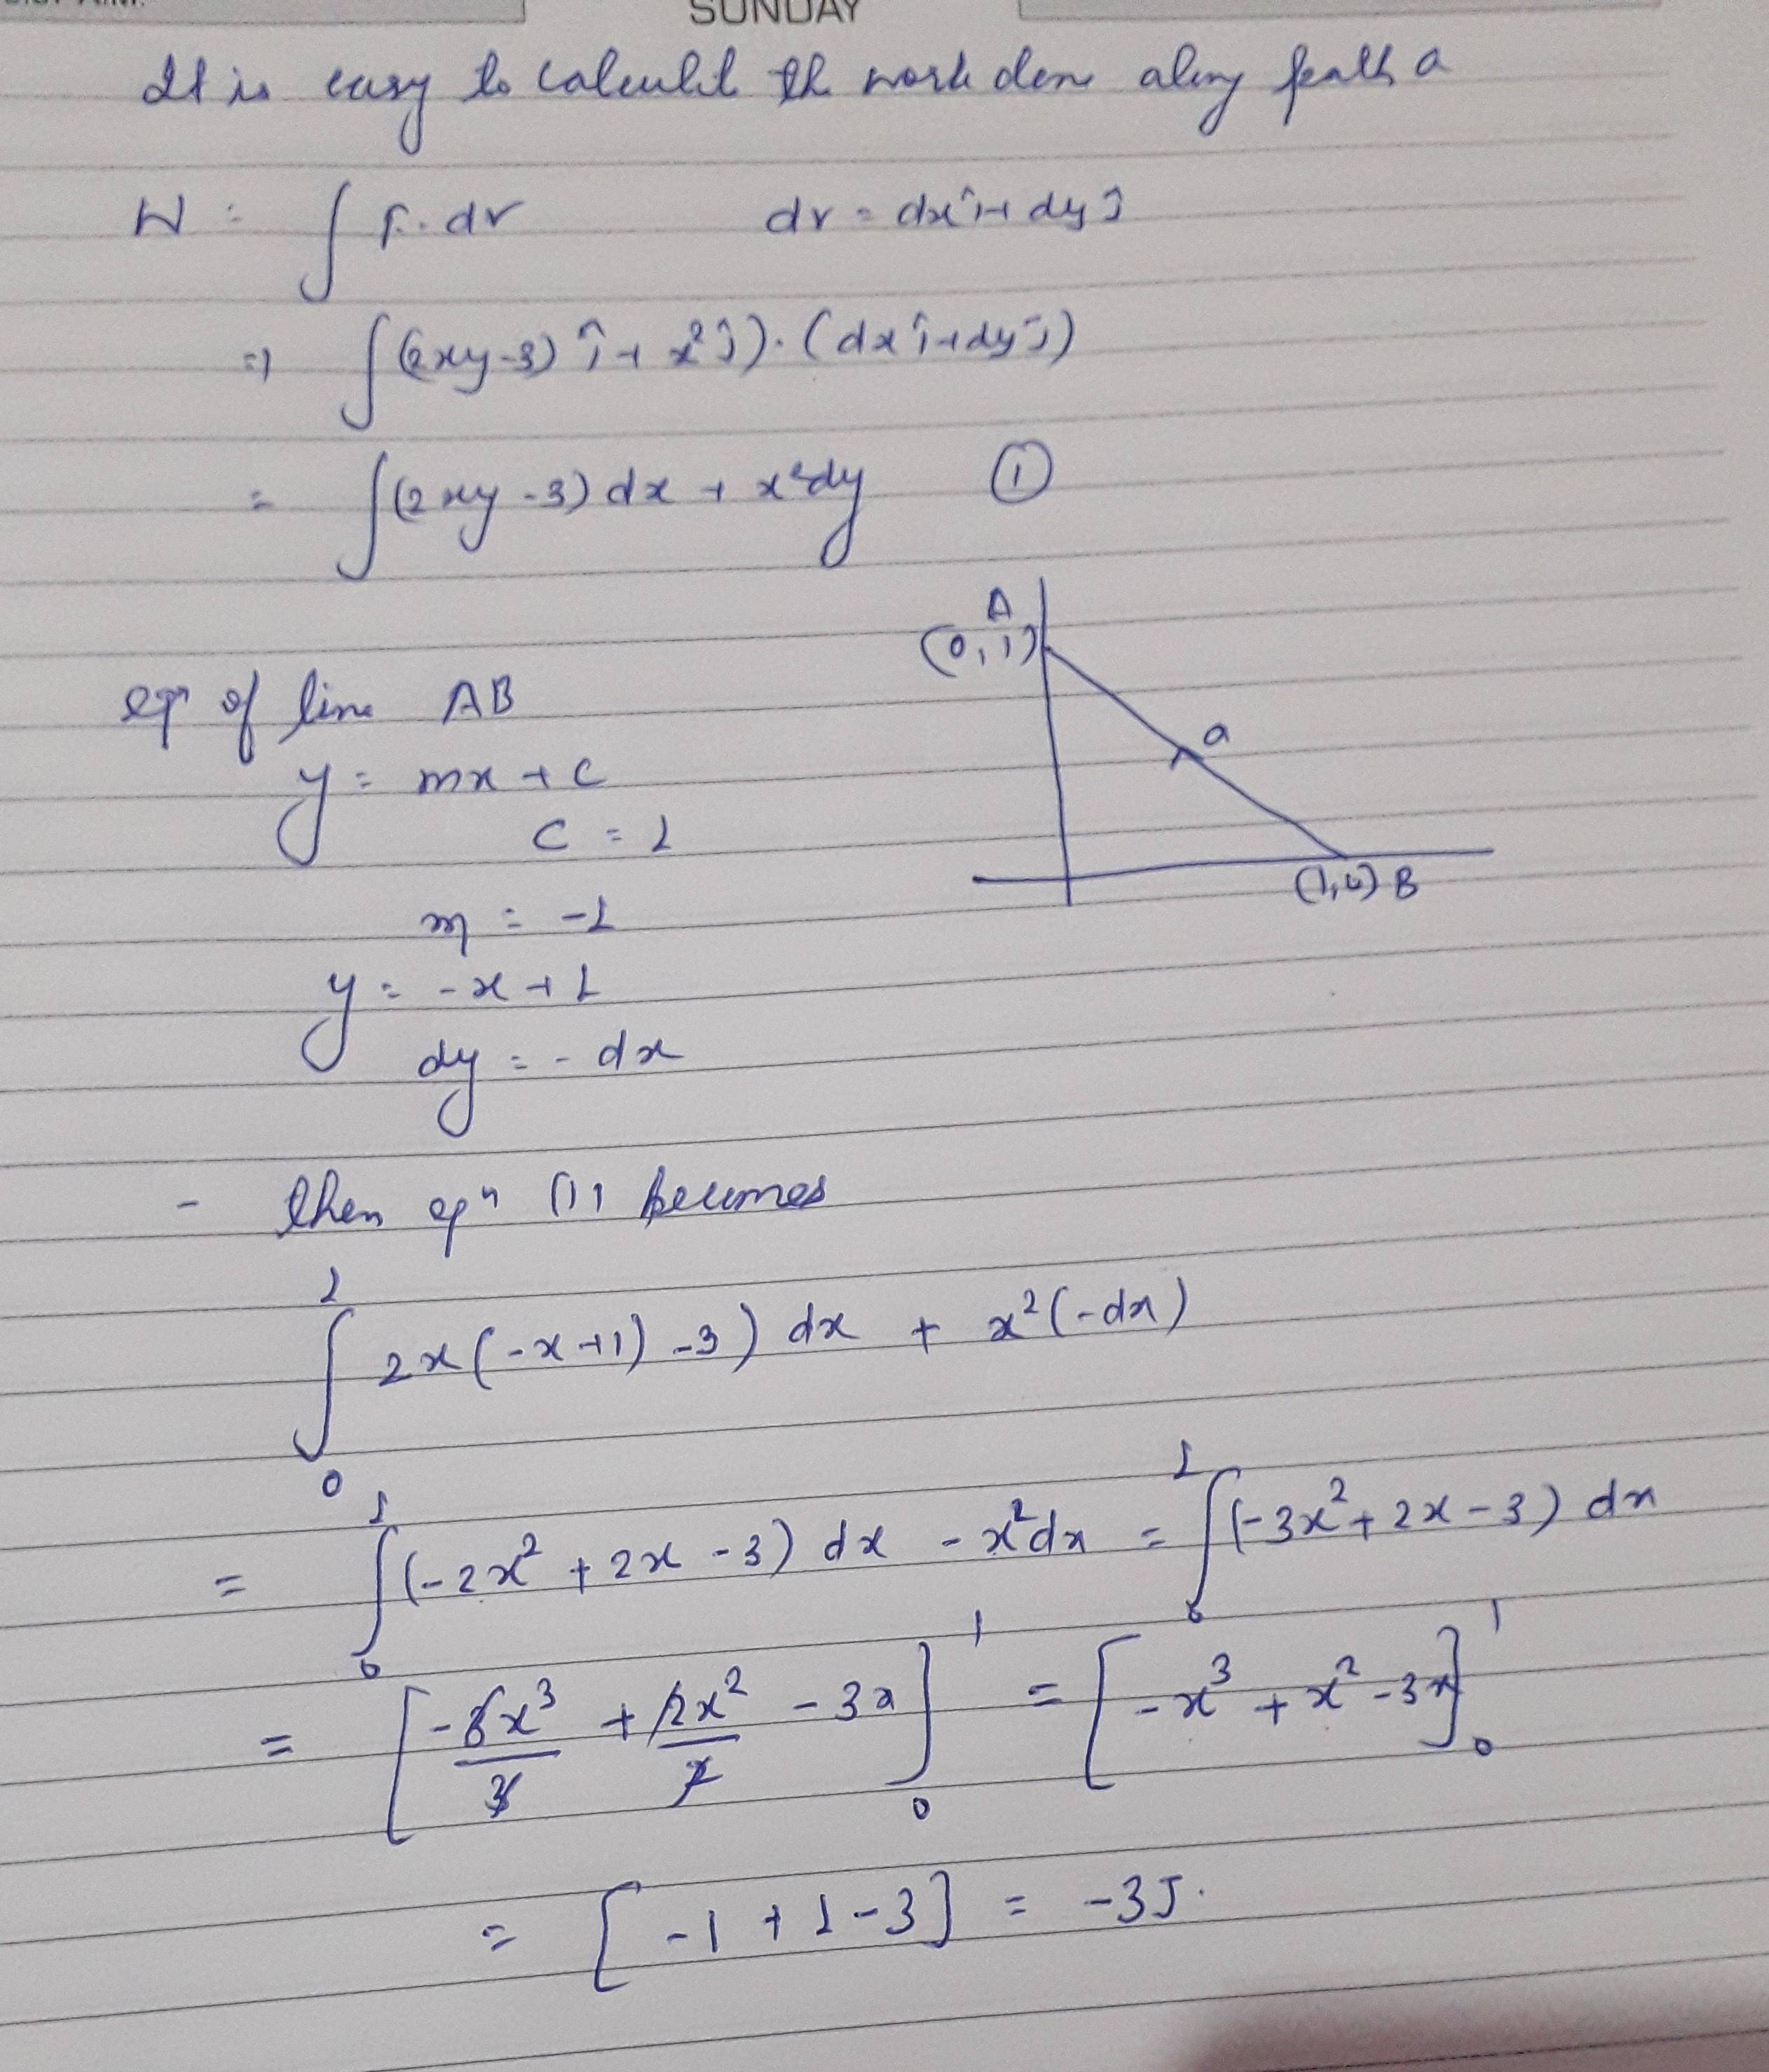 SUNDAY
It is easy to calculate the work done along path a
W = ∫ F. dr dr = dxî + dyĵ
=) ∫(2xy-3) î + x²ĵ). (dxî+dyĵ)
= ∫(2xy-3) dx + x²dy ①
A
(0,1)
eqⁿ of line AB
a
y = mx + c
c = 1
(1,0) B
m = -1
y = -x + 1
dy = - dx
- then eqⁿ (1) becomes
∫₀¹ 2x(-x+1) -3) dx + x²(-dx)
= ∫₀¹(-2x² + 2x - 3) dx - x²dx = ∫₀¹(-3x² + 2x - 3) dx
= [-3x³/3 + 2x²/2 - 3x]₀¹ = [-x³ + x² - 3x]₀¹
= [-1 + 1 - 3] = -3J.